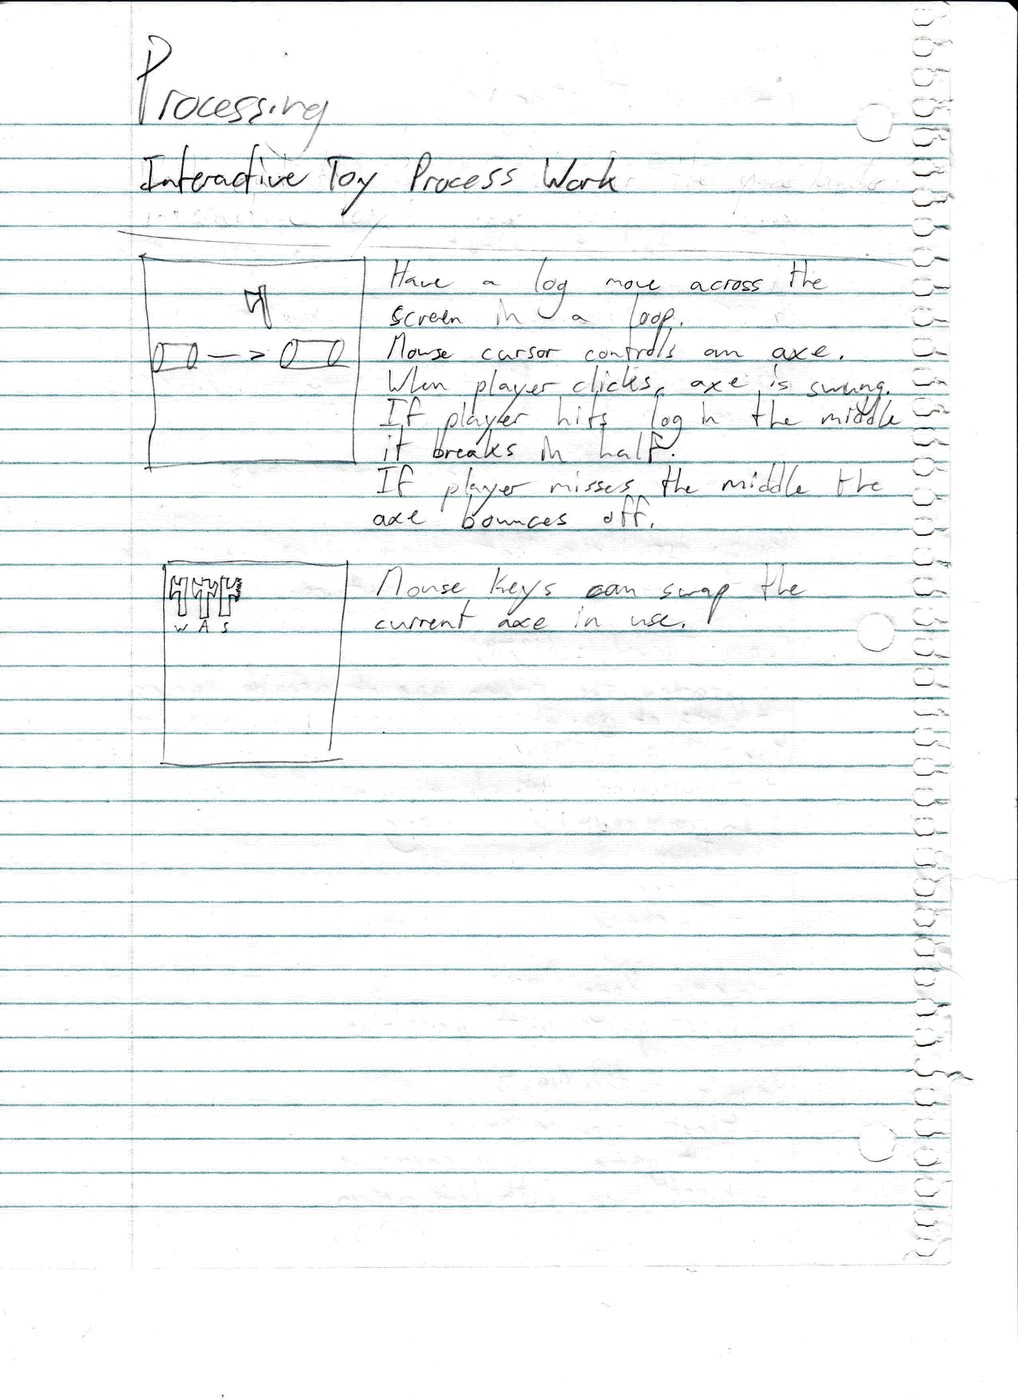 Processing
Interactive Toy Process Work
Have a log move across the
screen in a loop.
Mouse cursor controls an axe.
When player clicks, axe is swung.
If player hits log in the middle
it breaks in half.
If player misses the middle the
axe bounces off.
Mouse keys can swap the
current axe in use.
W A S